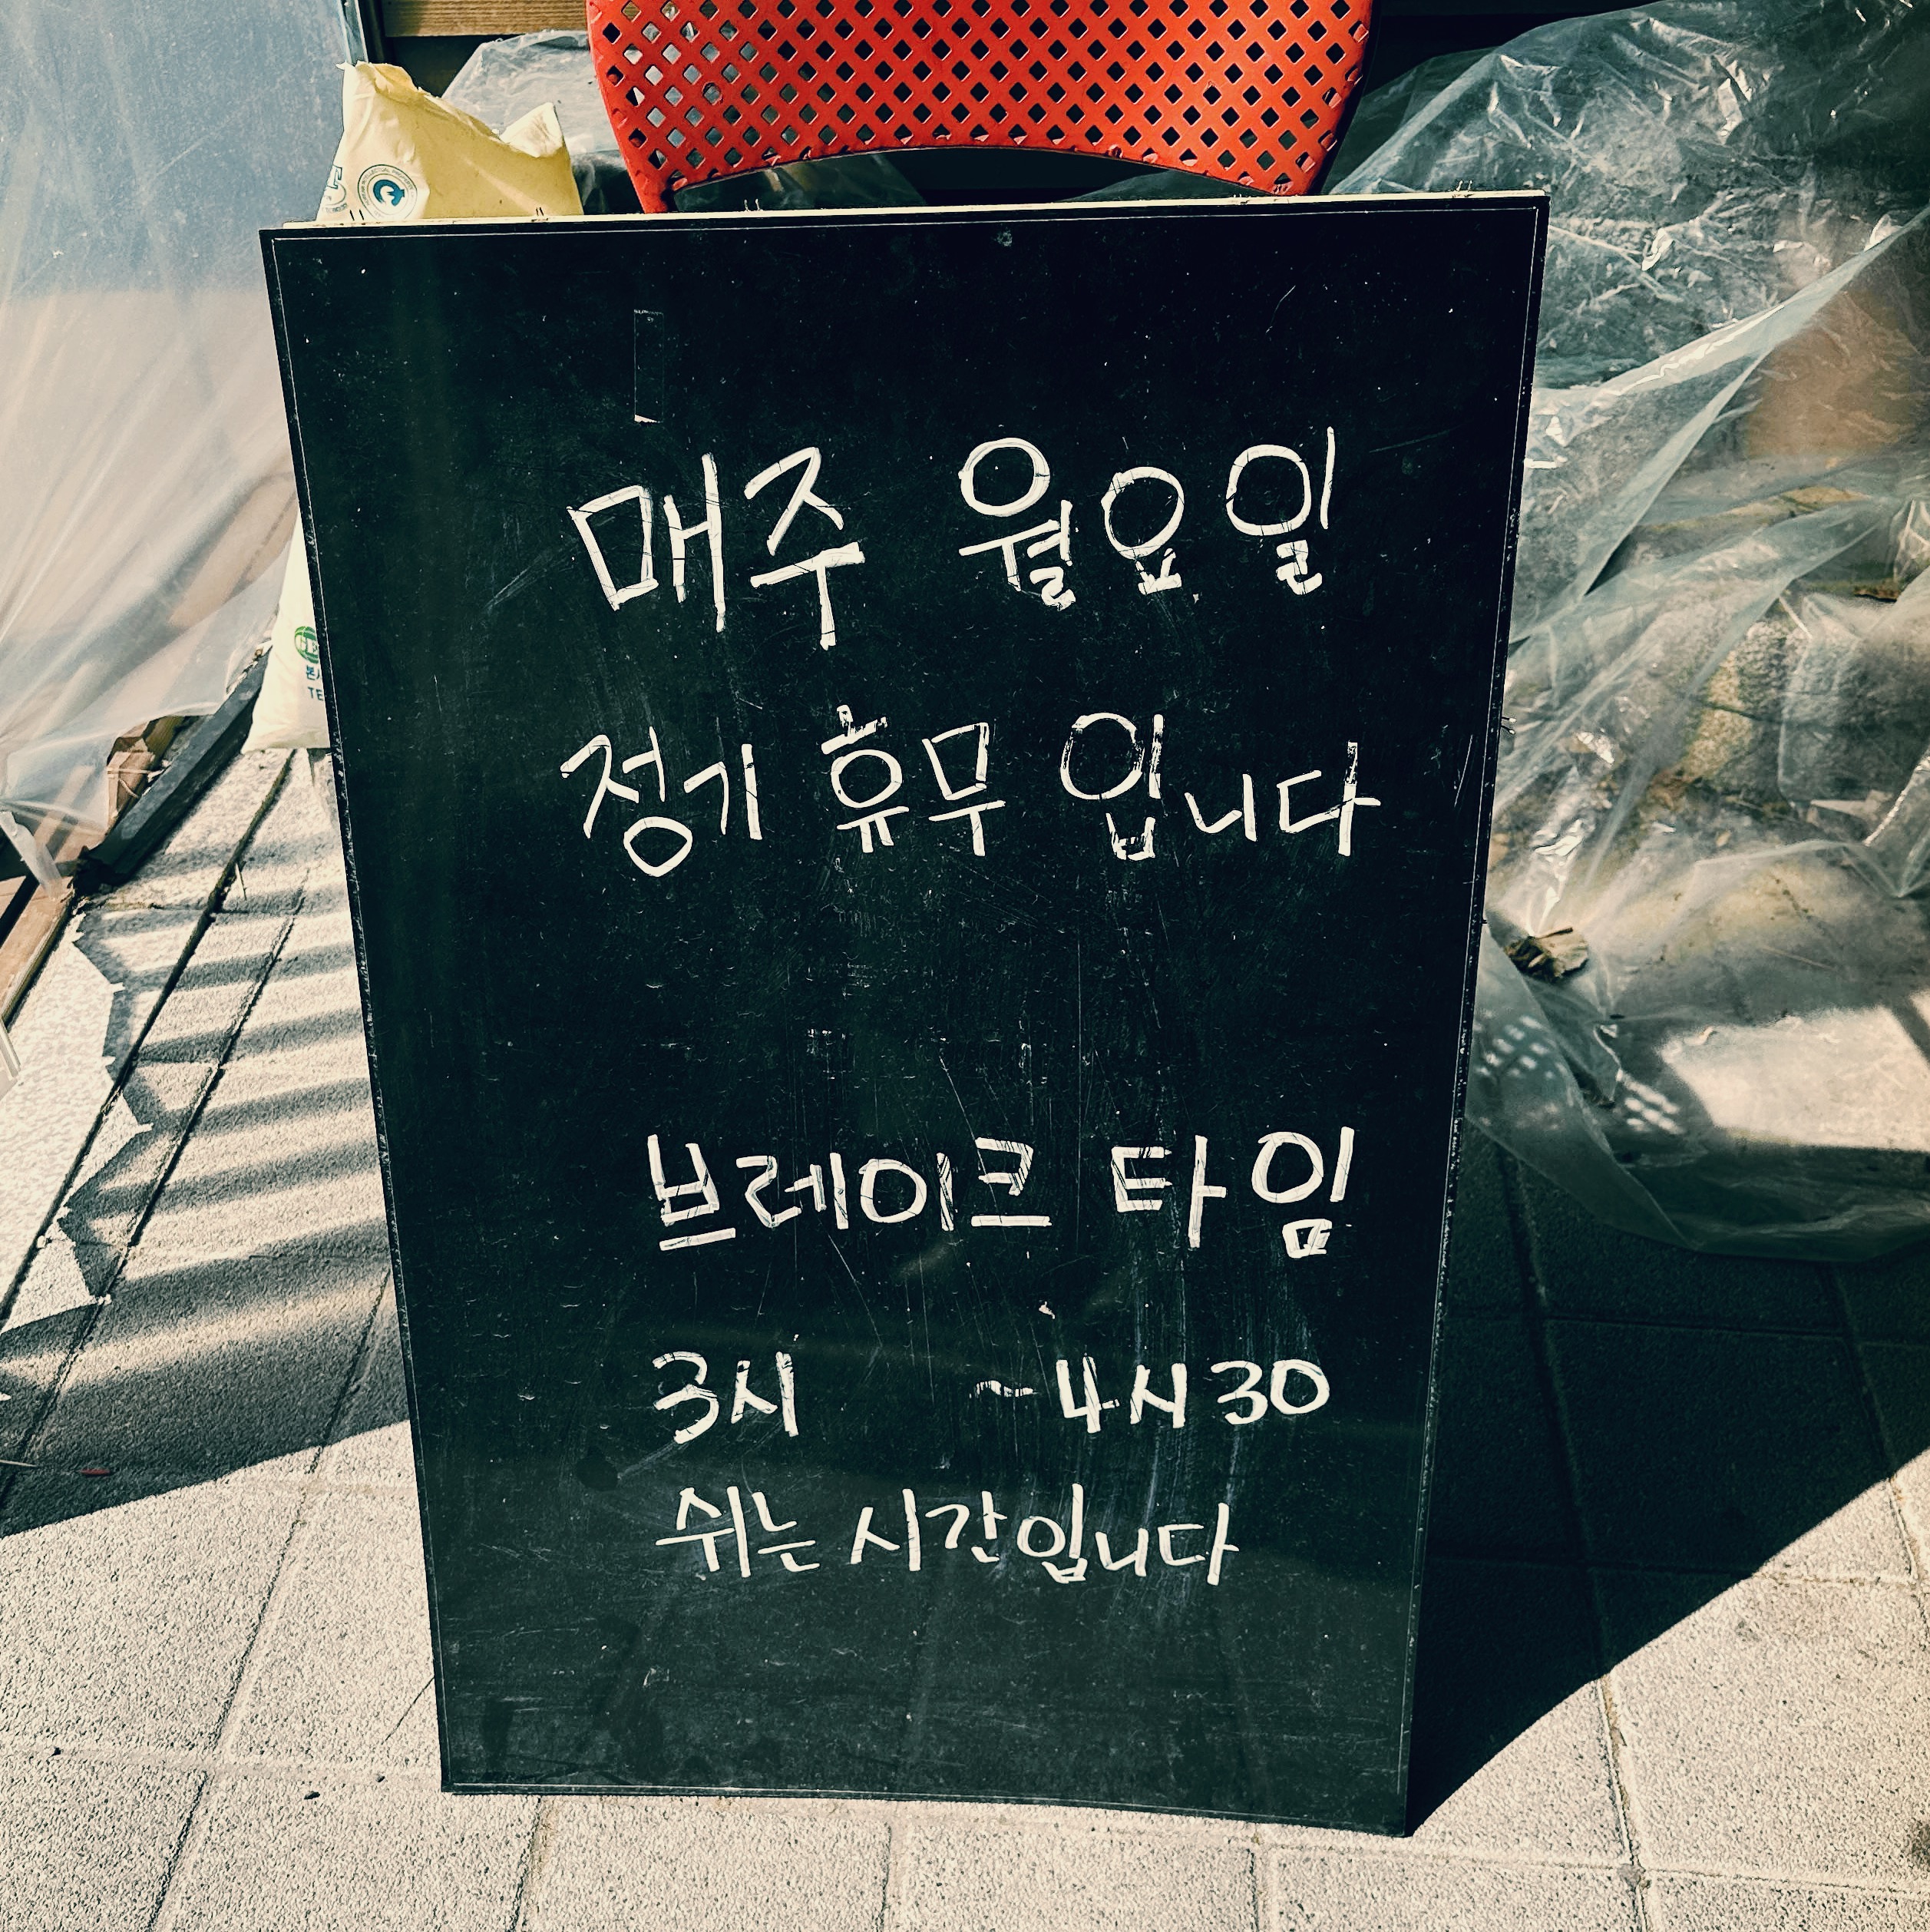 매주 월요일
정기 휴무 입니다
브레이크 타임
3시 ~4시30
쉬는 시간입니다